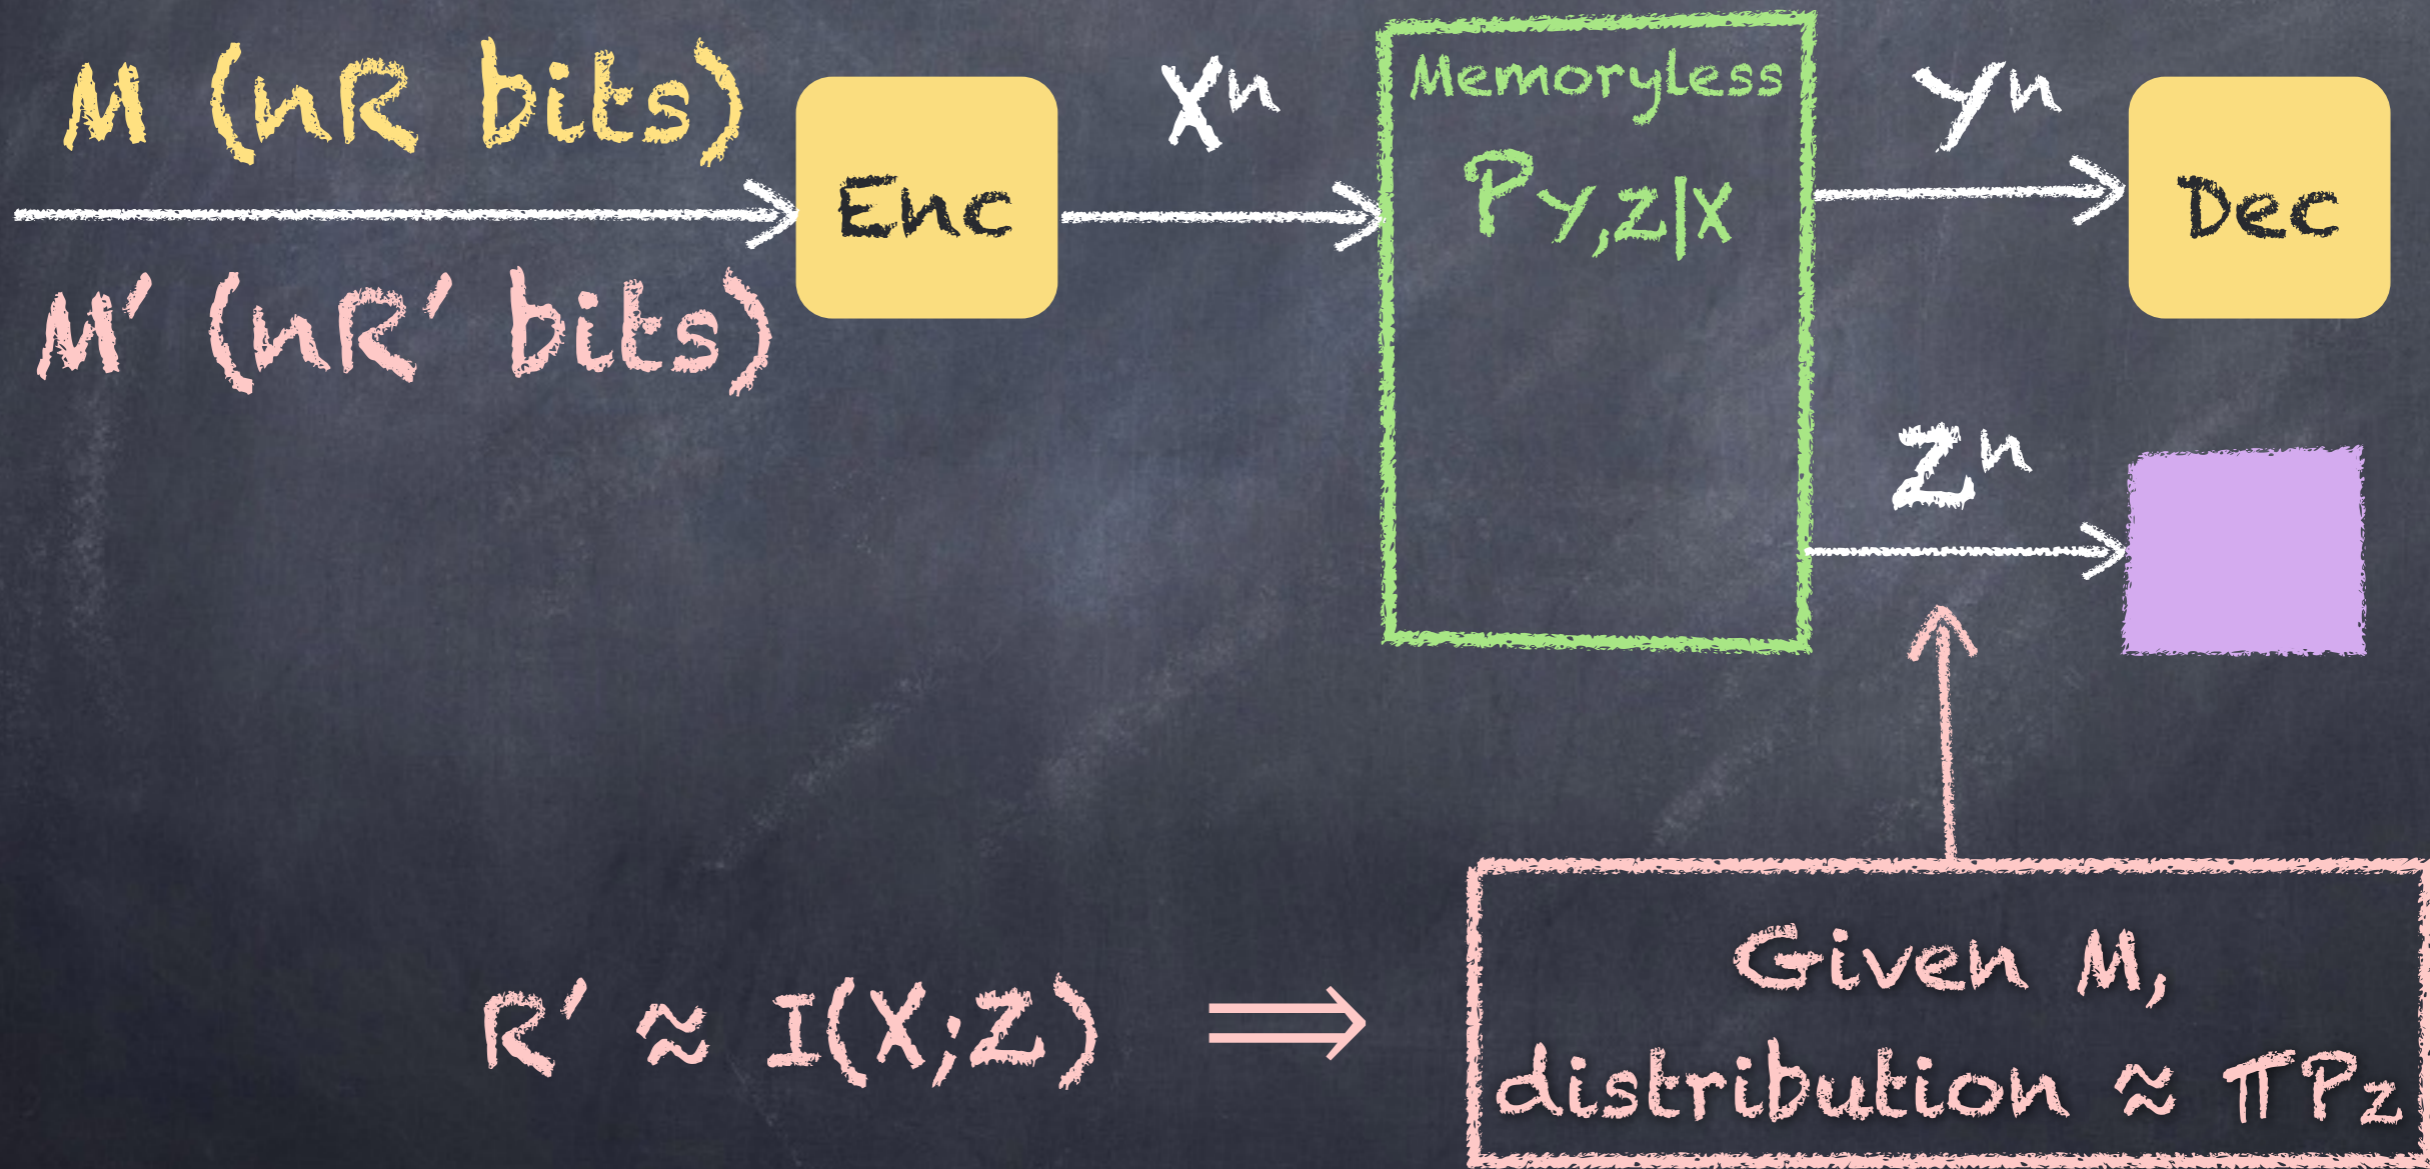 M (nR bits)
M′ (nR′ bits)
Enc
Xⁿ
Memoryless
P_{Y,Z|X}
Yⁿ
Dec
Zⁿ
R′ ≈ I(X;Z) ⟹
Given M,
distribution ≈ πP_Z